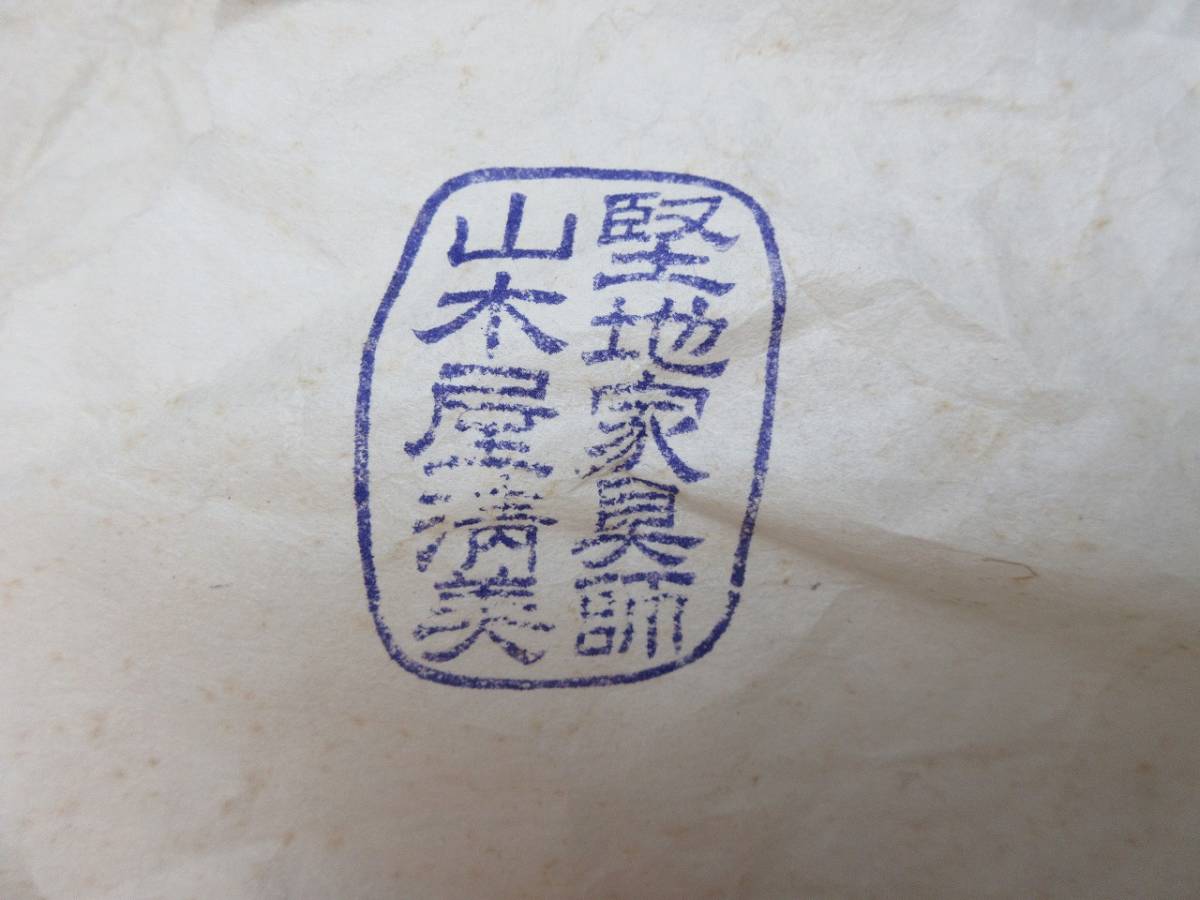 堅地家具師
山木屋清美